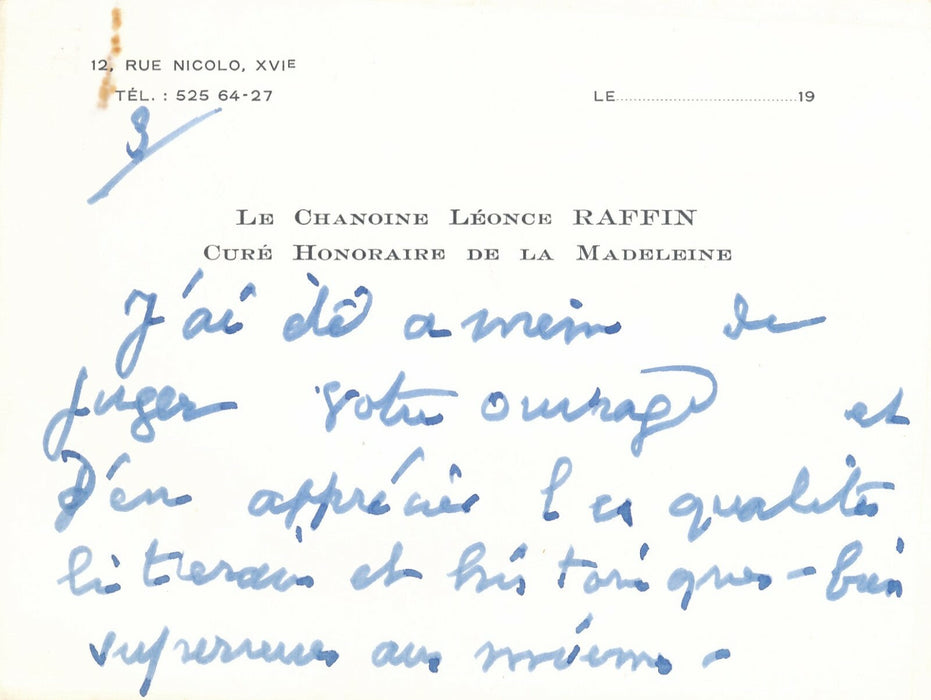 12, RUE NICOLO, XVIE
TÉL. : 525 64-27
LE 19
3
LE CHANOINE LÉONCE RAFFIN
CURÉ HONORAIRE DE LA MADELEINE
J'ai été a meme de
juger votre ouvrage et
d'en apprécier les qualités
litteraires et historiques - bien
superieures aux miennes -